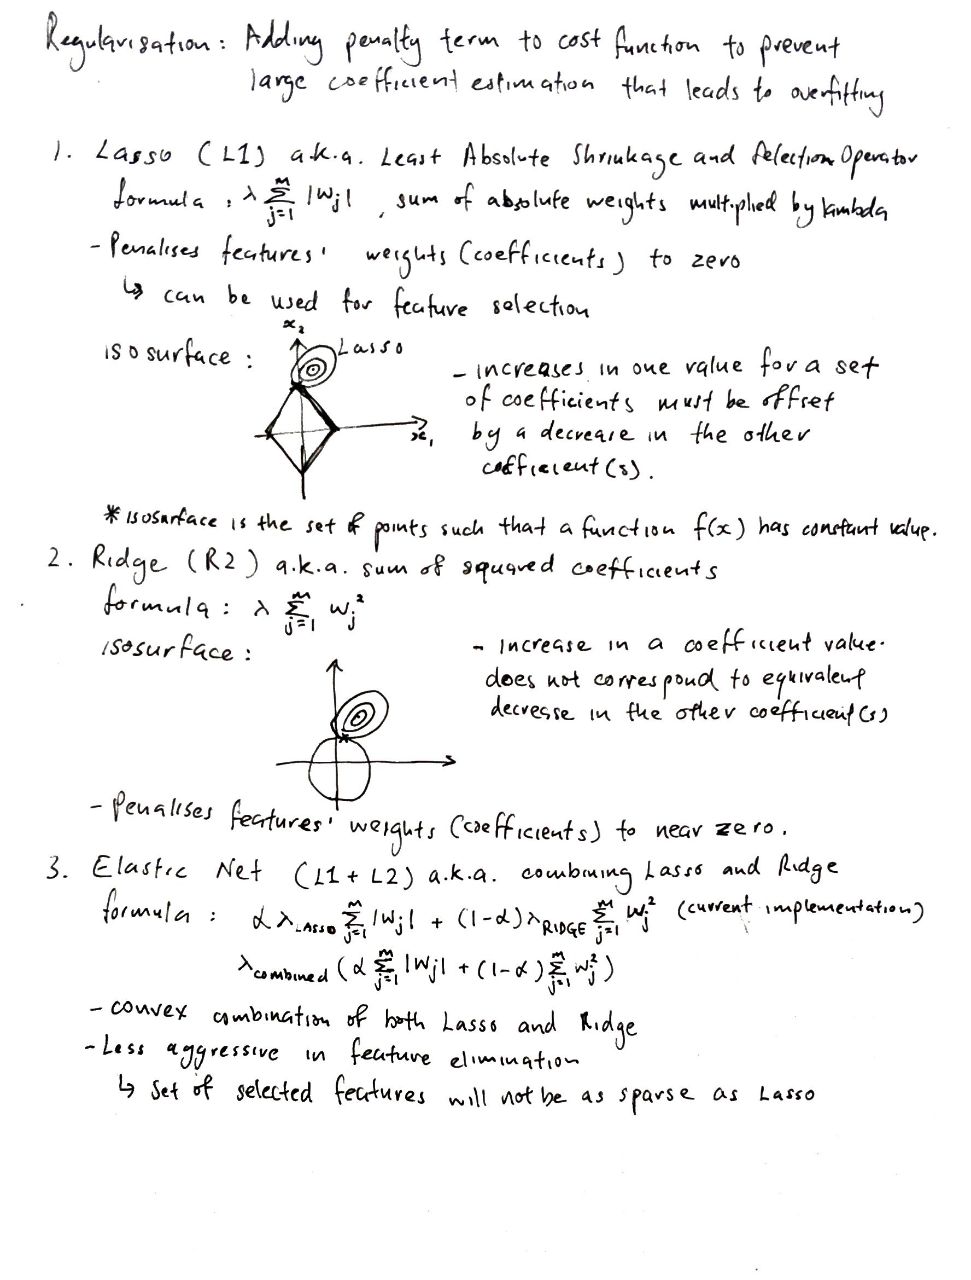 Regularisation: Adding penalty term to cost function to prevent
large coefficient estimation that leads to overfitting
1. Lasso (L1) a.k.a. Least Absolute Shrinkage and Selection Operator
formula, λ Σ_{j=1}^{m} |Wj|, sum of absolute weights multiplied by lambda
- Penalises features' weights (coefficients) to zero
↳ can be used for feature selection
isosurface:
x₂
Lasso
x₁
- increases in one value for a set
of coefficients must be offset
by a decrease in the other
coefficient(s).
* isosurface is the set of points such that a function f(x) has constant value.
2. Ridge (R2) a.k.a. sum of squared coefficients
formula: λ Σ_{j=1}^{m} Wj²
isosurface:
- Increase in a coefficient value
does not correspond to equivalent
decrease in the other coefficient(s)
- Penalises features' weights (coefficients) to near zero.
3. Elastic Net (L1 + L2) a.k.a. combining Lasso and Ridge
formula: αλ_LASSO Σ_{j=1}^{m} |Wj| + (1-α)λ_RIDGE Σ_{j=1}^{m} Wj² (current implementation)
λcombined (α Σ_{j=1}^{m} |Wj| + (1-α) Σ_{j=1}^{m} Wj²)
- convex combination of both Lasso and Ridge
- Less aggressive in feature elimination
↳ set of selected features will not be as sparse as Lasso